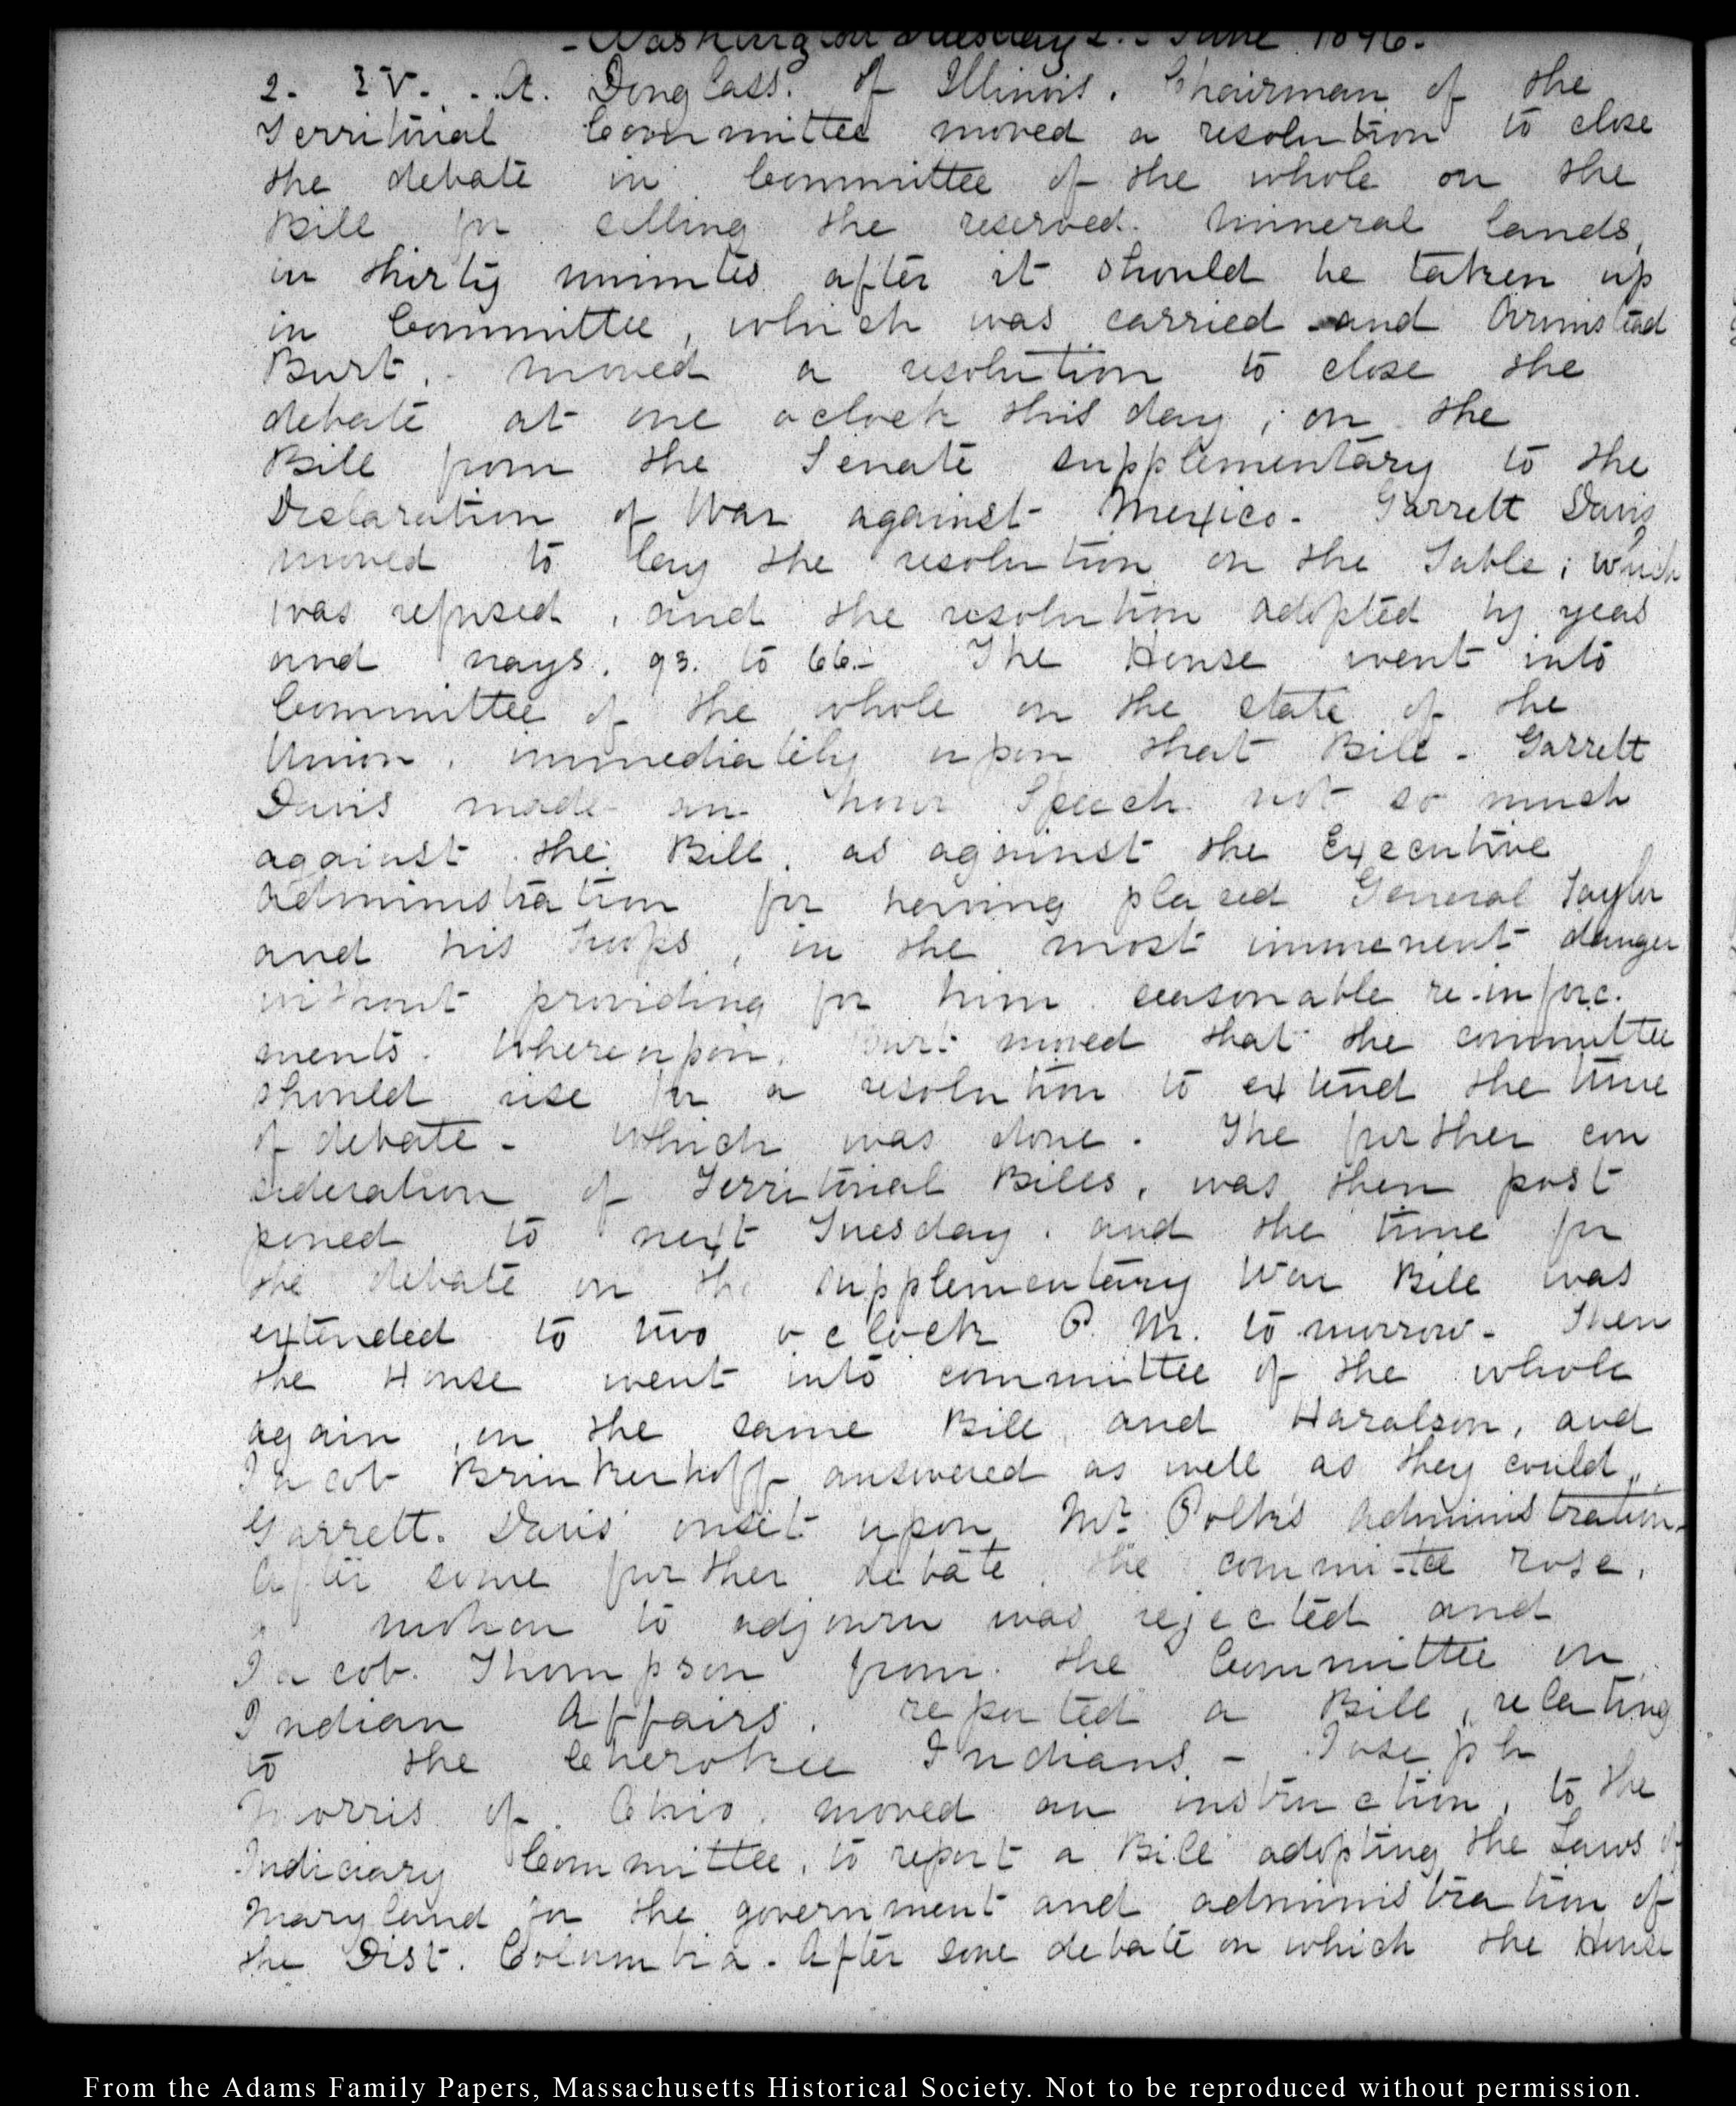 - Washington Tuesday 2. - June 1846.
2. IV. . . A. Douglass. of Illinois. Chairman of the
Territorial Committee moved a resolution to close
the debate in Committee of the whole on the
Bill for selling the reserved. mineral lands,
in thirty minutes after it should be taken up
in Committee, which was carried and Armistead
Burt. moved a resolution to close the
debate at one oclock this day; on the
Bill from the Senate supplementary to the
Declaration of War against Mexico. Garrett Davis
moved to lay the resolution on the Table; which
was refused, and the resolution adopted by yeas
and nays. 93. to 66.- The House went into
Committee of the whole on the state of the
Union, immediately upon that Bill - Garrett
Davis made an hour Speech not so much
against the Bill, as against the Executive
administration for having placed General Taylor
and his troops, in the most imminent danger
without providing for him seasonable re-inforc.
ments. Whereupon. Burt moved that the committee
should rise for a resolution to extend the time
of debate - which was done. The further con
sideration of Territorial Bills, was then post
poned to next Tuesday. and the time for
the debate on the supplementary War Bill was
extended to two o clock P. M. to morrow - Then
the House went into committee of the whole
again, on the same Bill and Haralson, and
Jacob Brinkerhoff answered as well as they could,
Garrett. Davis' onset upon Mr. Polk's administration.
After some further debate, the committee rose,
a motion to adjourn was rejected and
Jacob. Thompson from. the Committee on
Indian Affairs. reported a Bill, relating
to the Cherokee Indians. - Joseph
Morris of. Ohio. moved an instruction, to the
Judiciary Committee, to report a Bill adopting the Laws of
Maryland for the government and administration of
the Dist. Columbia. After some debate on which the House
From the Adams Family Papers, Massachusetts Historical Society. Not to be reproduced without permission.